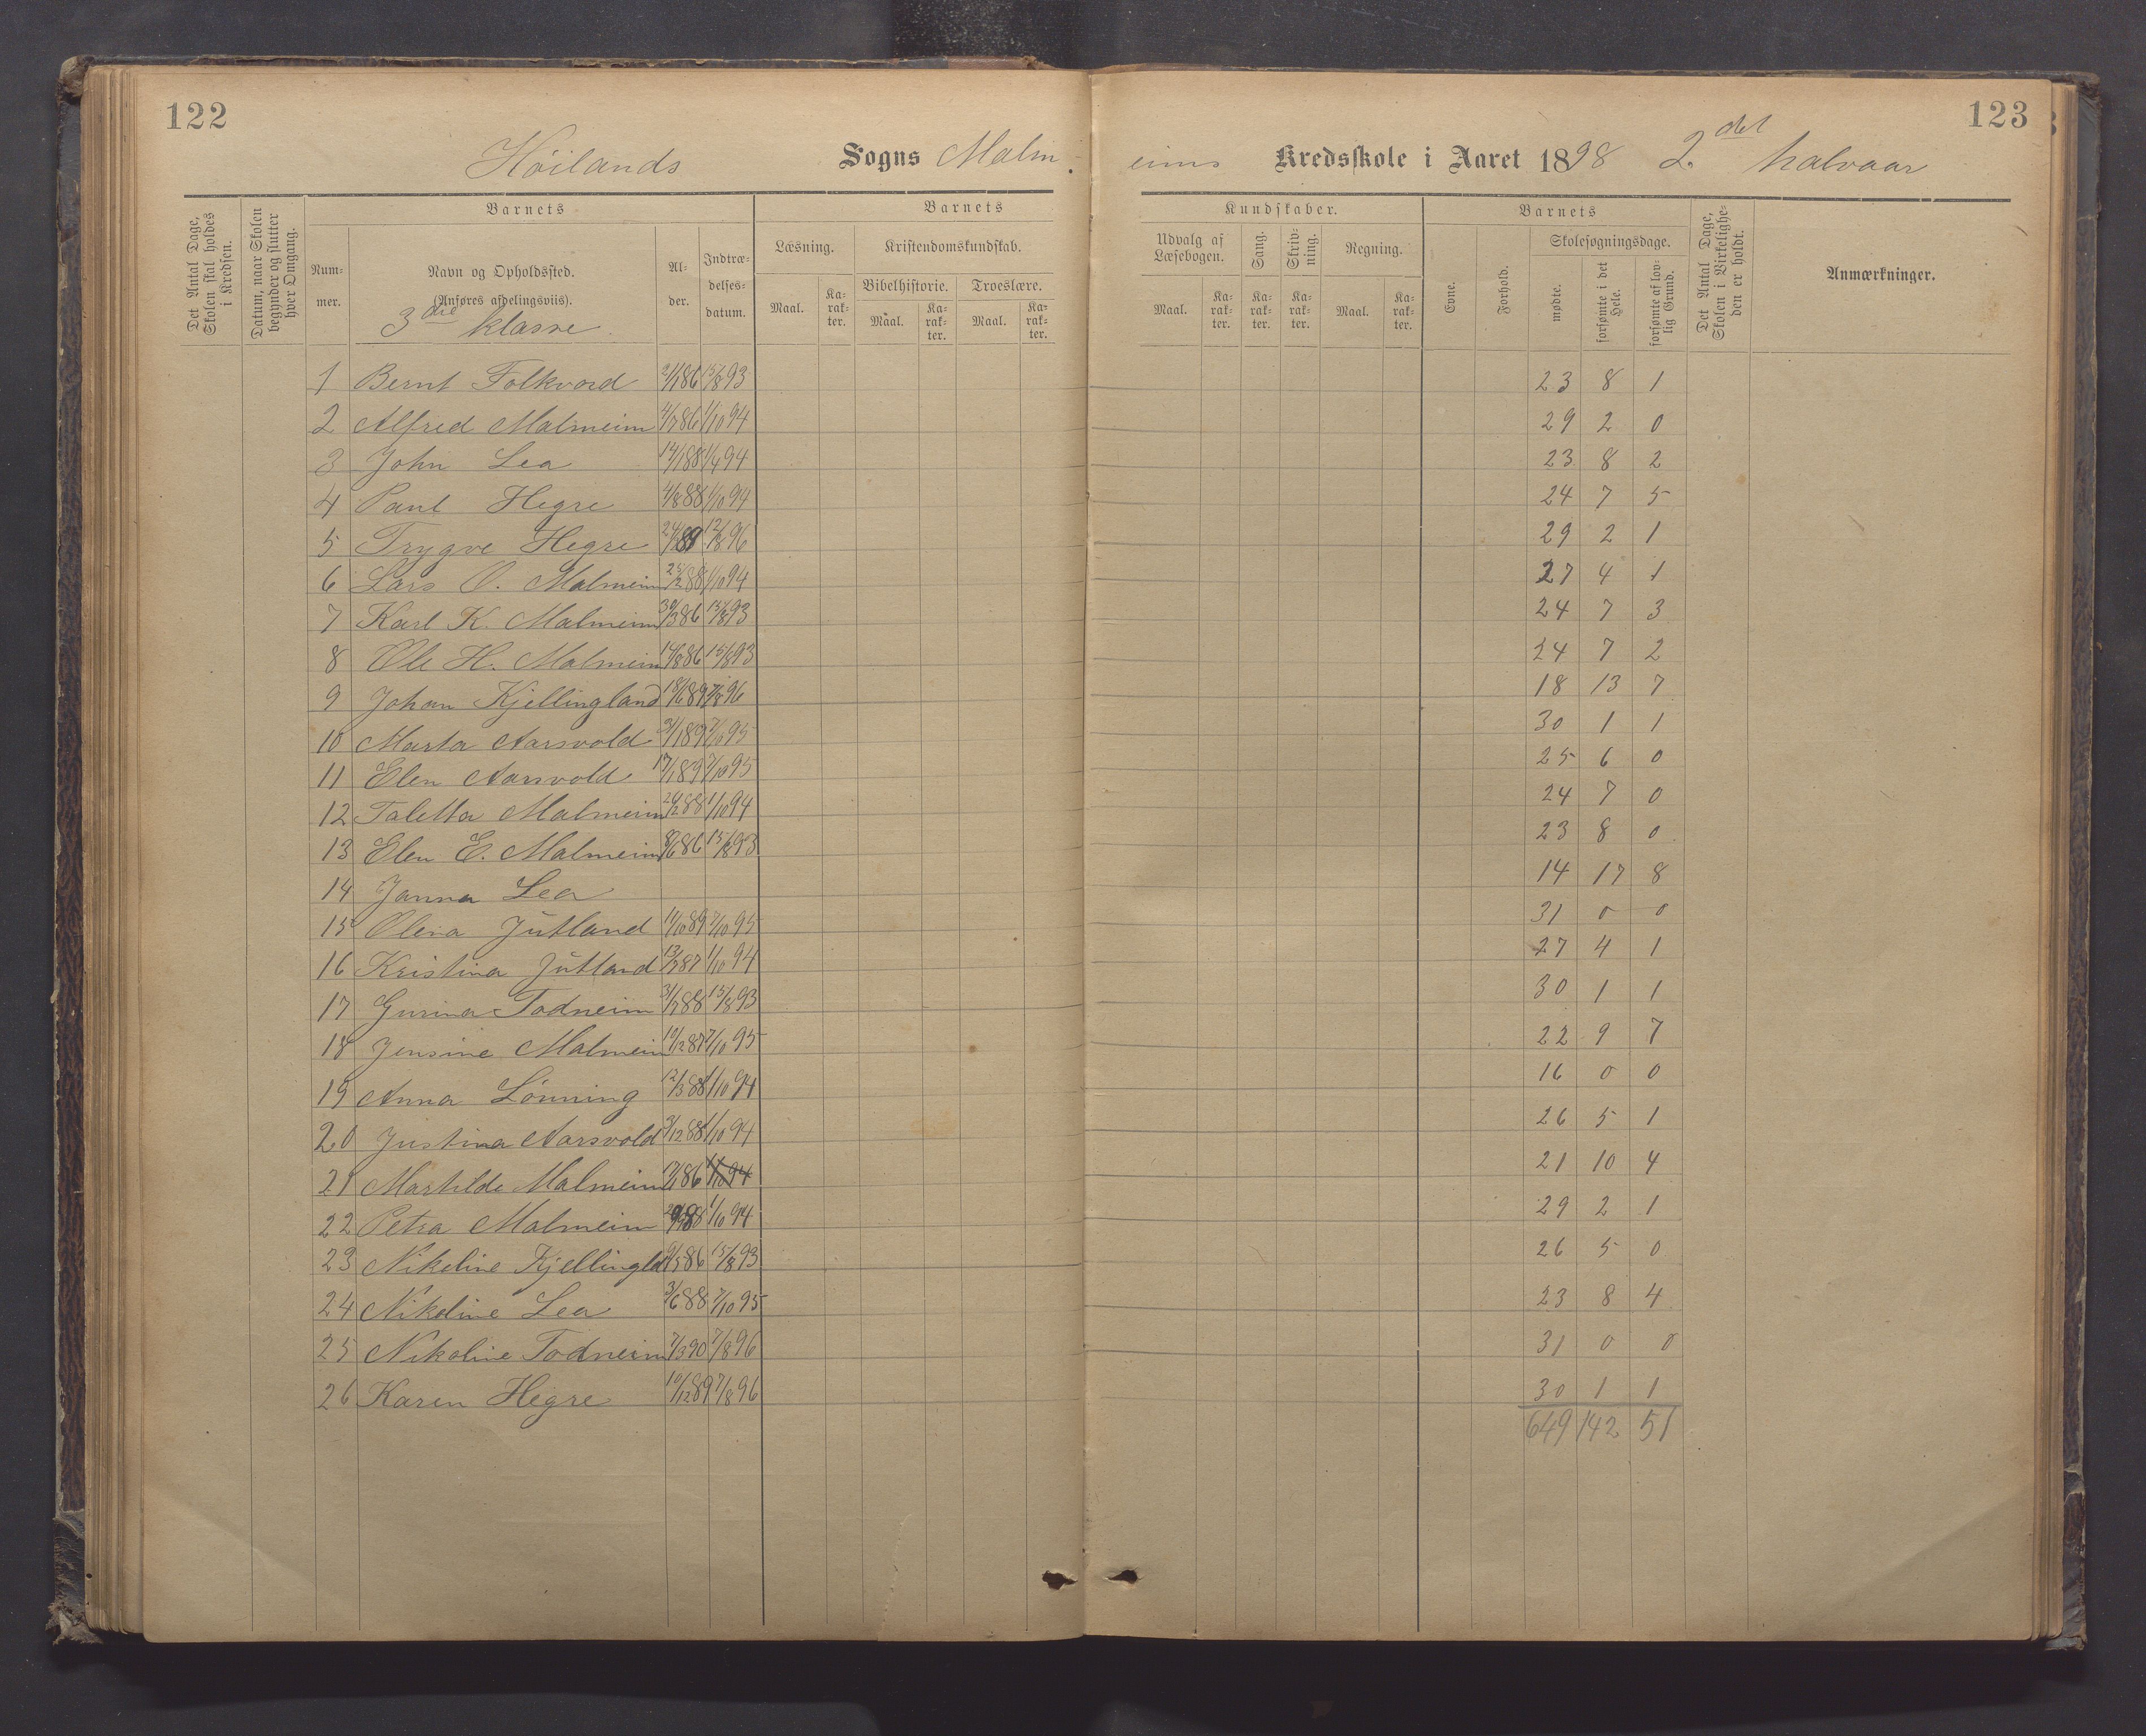 122
123
Höilands Sogns Malmeims Kredsskole i Aaret 1898 2det halvaar
Det Antal Dage, Skolen skal holdes i Kredsen.
Datum, naar Skolen begynder og slutter hver Omgang.
Barnets
Barnets
Kundskaber.
Barnets
Det Antal Dage, Skolen i Virkeligheden er holdt.
Anmærkninger.
Nummer.
Navn og Opholdssted.
(Anføres afdelingsviis).
Alder.
Indtrædelsesdatum.
Læsning.
Kristendomskundskab.
Udvalg af Læsebogen.
Sang.
Skrivning.
Regning.
Evne.
Forhold.
Skolesøgningsdage.
Maal.
Karakter.
Bibelhistorie.
Troeslære.
Maal.
Karakter.
Maal.
Karakter.
Maal.
Karakter.
Karakter.
Karakter.
Maal.
Karakter.
mødte.
forsømte i det Hele.
forsømte af lovlig Grund.
3die klasse
1 Bernt Folkvord 2/1 86 15/8 93 23 8 1
2 Alfred Malmeim 4/7 86 1/10 94 29 2 0
3 John Lea 14/1 88 1/4 94 23 8 2
4 Paul Hegre 4/8 88 1/10 94 24 7 5
5 Trygve Hegre 89 12/8 96 29 2 1
6 Lars O. Malmeim 25/2 88 1/10 94 27 4 1
7 Karl K. Malmeim 30/3 86 15/8 93 24 7 3
8 Ole H. Malmeim 14/8 86 15/8 93 24 7 2
9 Johan Kjellingland 18/6 89 7/8 96 18 13 7
10 Marta Aarsvold 31/1 89 7/10 95 30 1 1
11 Elen Aarsvold 17/1 89 7/10 95 25 6 0
12 Taletta Malmeim 26/2 88 1/10 94 24 7 0
13 Elen E. Malmeim 8/6 86 15/8 93 23 8 0
14 Janna Lea 14 17 8
15 Olena Jütland 11/10 89 7/10 95 31 0 0
16 Kristina Jütland 13/7 87 1/10 94 27 4 1
17 Gurina Todneim 31/7 88 15/8 93 30 1 1
18 Jensine Malmeim 10/12 87 7/10 95 22 9 7
19 Anna Lönning 12/3 88 1/10 94 16 0 0
20 Justina Aarsvold 3/12 88 1/10 94 26 5 1
21 Martilde Malmeim 86 1/10 94 21 10 4
22 Petra Malmeim 88 1/10 94 29 2 1
23 Nikeline Kjellingld 6/5 86 15/8 93 26 5 0
24 Nikoline Lea 3/6 88 7/10 95 23 8 4
25 Nikoline Todneim 7/3 90 7/8 96 31 0 0
26 Karen Hegre 10/12 89 7/8 96 30 1 1
649 142 51